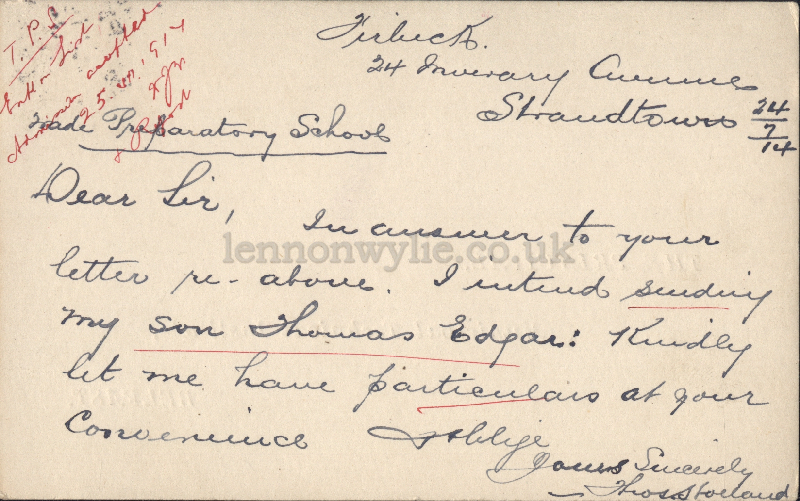 Firbeck.
24 Inverary Avenue
Strandtown 24/7/14
T.P.S
Enter list
Answer
25
Trade Preparatory School
Dear Sir,
In answer to your
letter re-above. I intend sending
my son Thomas Edgar: Kindly
let me have particulars at your
convenience & oblige
Yours Sincerely
Thos Holland
lennonwylie.co.uk